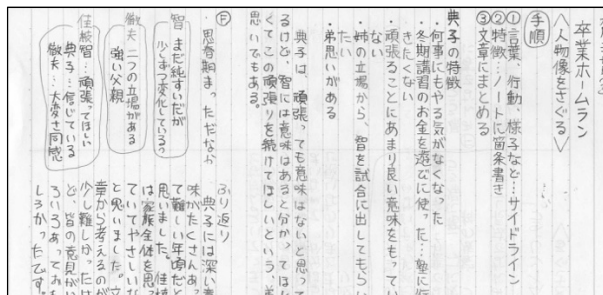 卒業ホームラン
〈人物像をさぐる〉
手順
①言葉、行動、様子など…サイドライン
②特徴…ノートに箇条書き
③文章にまとめる
典子の特徴
・何事にもやる気がなくなった
・冬期講習のお金を遊びに使った…塾に
きたくない
・頑張ることにあまり良い意味をもってい
ない
・姉の立場から、智を試合に出してもらい
たい
・弟思いがある
典子は、頑張っても意味はないと思って
るけど、智には意味はあると分かってほし
くてこの頑張りを続けてほしいという、弟
思いでもある。
Ⓕ
・思春期まっただなか
智 まだ純すいだが
少しずつ変化している?
徹夫 二つの立場がある
強い父親
佳枝 智…頑張ってほしい
典子…信じている
徹夫…大変さ同感
ふり返り
典子には深い意
味がたくさんあっ
て難しい年頃だと
思いました。佳枝
は家族全体を思っ
ていてやさしいな
と思いました。文
章から考えるのが
少し難しかったけ
ど、皆の意見がい
ろいろあっておも
しろかったです。